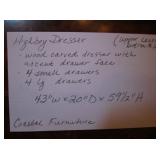 Hickory Dresser (Upper
- wood carved dresser with
accent drawer face
- 4 small drawers
- 4 lg drawers
43"W x 20"D x 59½"H
Coastal Furniture